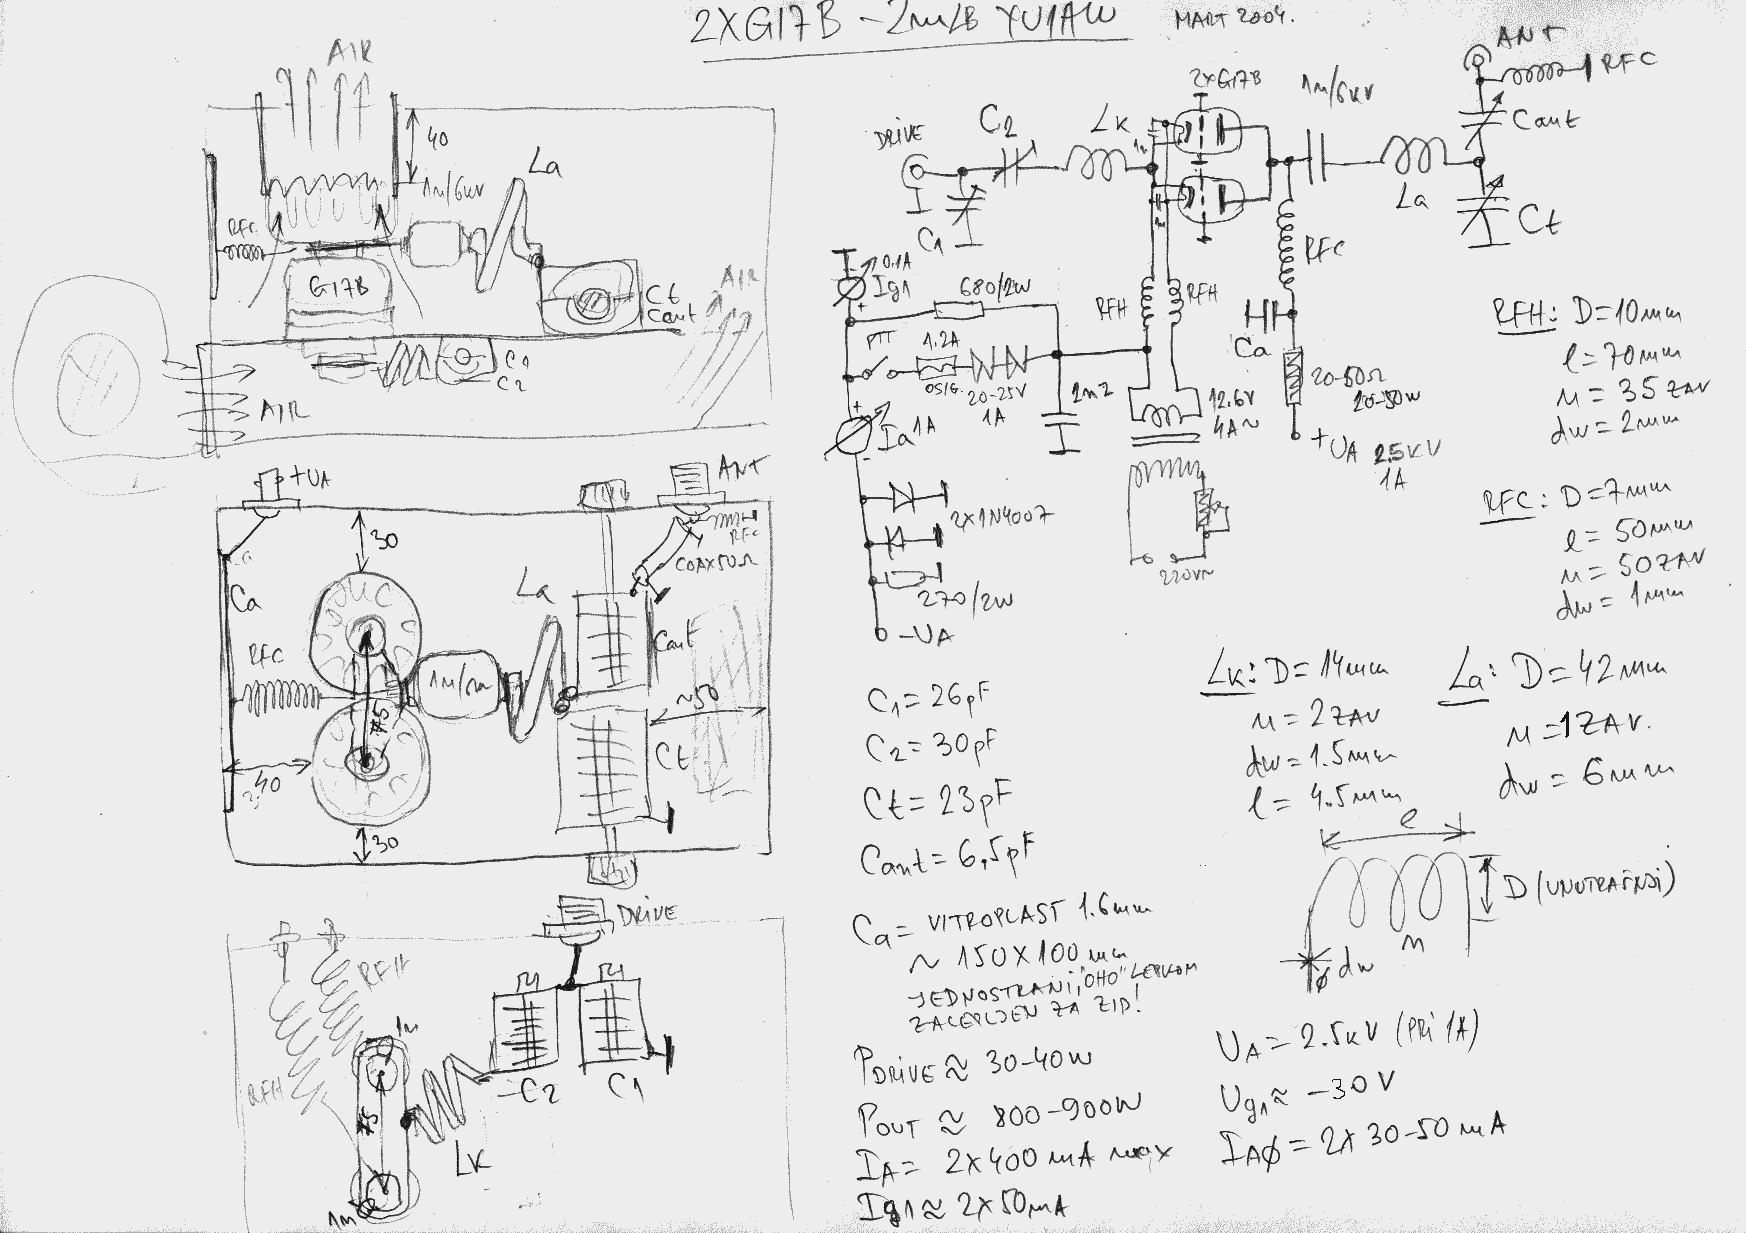 2XGI7B - 2m/LB YU1AW
MART 2004.
AIR
40
1n/6kV
La
RFC
GI7B
Ct
Cant
AIR
C1
C2
AIR
+UA
ANT
30
RFC
COAX 50Ω
Ca
La
Cant
RFC
75
~50
Ct
40
30
DRIVE
RFH
RFH
1n
75
C2
C1
Lk
1n
2XGI7B
1n/6kV
ANT
RFC
Cant
DRIVE
C2
Lk
1n
C1
La
Ct
RFC
0.1A
Ig1
680/2W
RFH
RFH
PTT
1.2A
OSIG.
20-25V
1A
2n2
12.6V
4A~
Ca
20-50Ω
20-50W
+UA 2.5KV
1A
Ia 1A
2X1N4007
270/2W
-UA
220V~
RFH: D=10mm
l=70mm
n=35ZAV
dw=2mm
RFC: D=7mm
l=50mm
n=50ZAV
dw=1mm
C1=26pF
C2=30pF
Ct=23pF
Cant=6,5pF
Lk: D=14mm
n=2ZAV
dw=1.5mm
l=4.5mm
La: D=42mm
n=1ZAV.
dw=6mm
l
D (UNUTRAŠNJI)
n
ϕ dw
Ca= VITROPLAST 1.6mm
~ 150X100mm
JEDNOSTRANI, "OHO" LEPKOM
ZALEPLJEN ZA ZID!
PDRIVE ≈ 30-40W
POUT ≈ 800-900W
IA= 2X400mA max
Ig1≈ 2X50mA
UA= 2.5KV (PRI 1A)
Ug1≈ -30V
IAϕ= 2X30-50mA